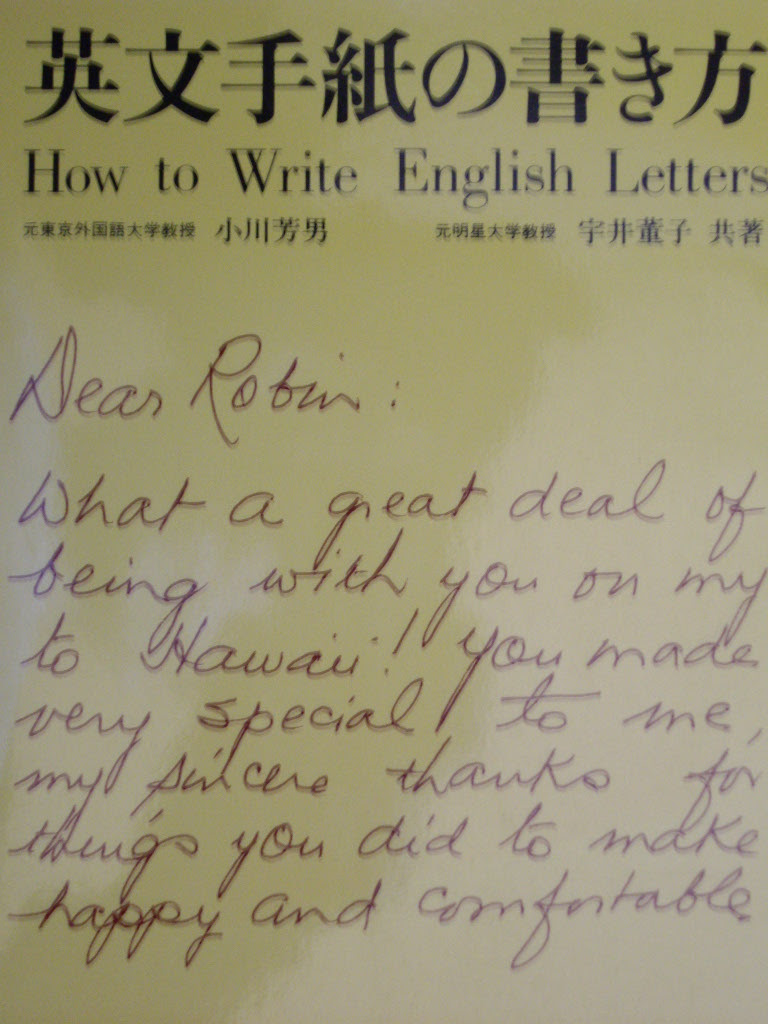 英文手紙の書き方
How to Write English Letters
元東京外国語大学教授 小川芳男 元明星大学教授 宇井菫子 共著
Dear Robin:
What a great deal of
being with you on my
to Hawaii! You made
very special to me,
my sincere thanks for
things you did to make
happy and comfortable